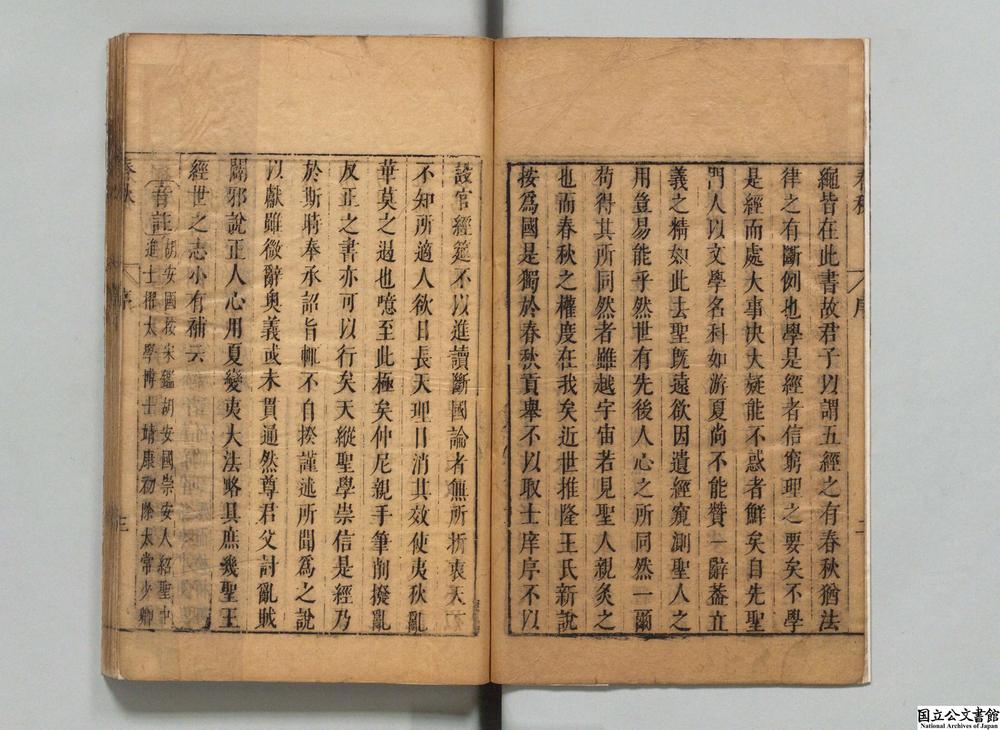 繩皆在此書故君子以謂五經之有春秋猶法
律之有斷例也學是經者信窮理之要矣不學
是經而處大事決大疑能不惑者鮮矣自先聖
門人以文學名科如游夏尚不能贊一辭葢立
義之精如此去聖既遠欲因遺經窺測聖人之
用豈易能乎然世有先後人心之所同然一爾
苟得其所同然者雖越宇宙若見聖人親炙之
也而春秋之權度在我矣近世推隆王氏新說
按爲國是獨於春秋貢舉不以取士庠序不以
設官經筵不以進讀斷國論者無所折衷天下
不知所適人欲日長天理日消其效使夷狄亂
華莫之遏也噫至此極矣仲尼親手筆削撥亂
反正之書亦可以行矣天縱聖學崇信是經乃
於斯時奉承詔旨輒不自揆謹述所聞爲之說
以獻雖微辭奧義或未貫通然尊君父討亂賊
闢邪說正人心用夏變夷大法略具庶幾聖王
經世之志小有補云
音註
胡安國按宋鑑胡安國崇安人紹聖中
進士擢太學博士靖康初除太常少卿
春秋
序
二
春秋
序
三
国立公文書館
National Archives of Japan